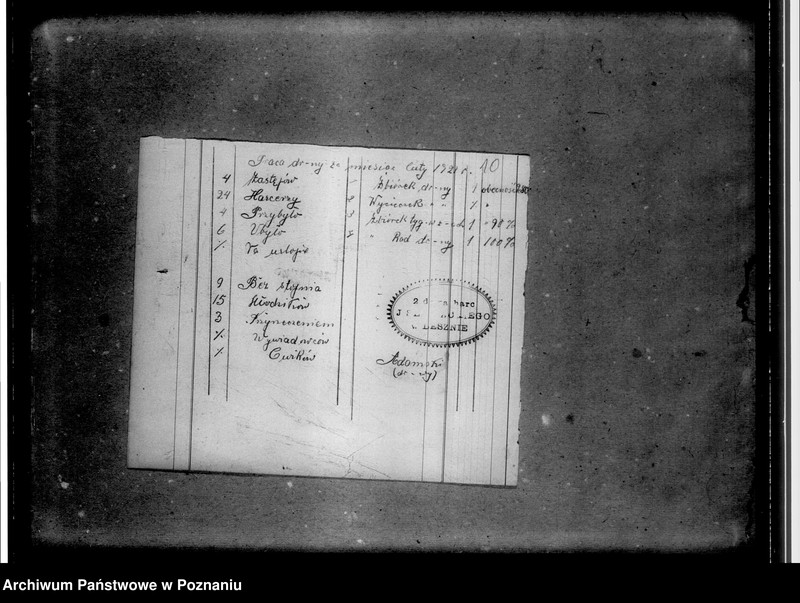 Praca dr-ny za miesiąc luty 1921 r. 10
4 Zastępów
24 Harcerzy
4 Przybyło
6 Ubyło
% Na urlopie
Zbiórek dr-ny 1 obecność
Wycieczek " " % "
3 Zbiórek 1 " 98 %
" Rad dr-ny 1 100 %
9 Bez stopnia
15 Młodzików
3 Z Przyrzeczeniem
% Wywiadowców
% Ćwików
2 harc
EGO
ESZNIE
Adamski
(dr-ny)
Archiwum Państwowe w Poznaniu